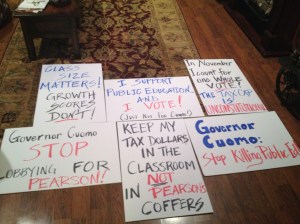 CLASS
SIZE
MATTERS!
GROWTH
SCORES
DON'T!
I SUPPORT
PUBLIC EDUCATION,
AND
I VOTE!
(Just Not For Cuomo)
In November
I count for
one WHOLE
VOTE!
THE TAX CAP
IS
UNCONSTITUTIONAL
GOVERNOR CUOMO
STOP
LOBBYING FOR
PEARSON!
KEEP MY
TAX DOLLARS
IN THE
CLASSROOM
NOT
IN PEARSON'S
COFFERS
Governor
Cuomo:
Stop Killing Public Ed!